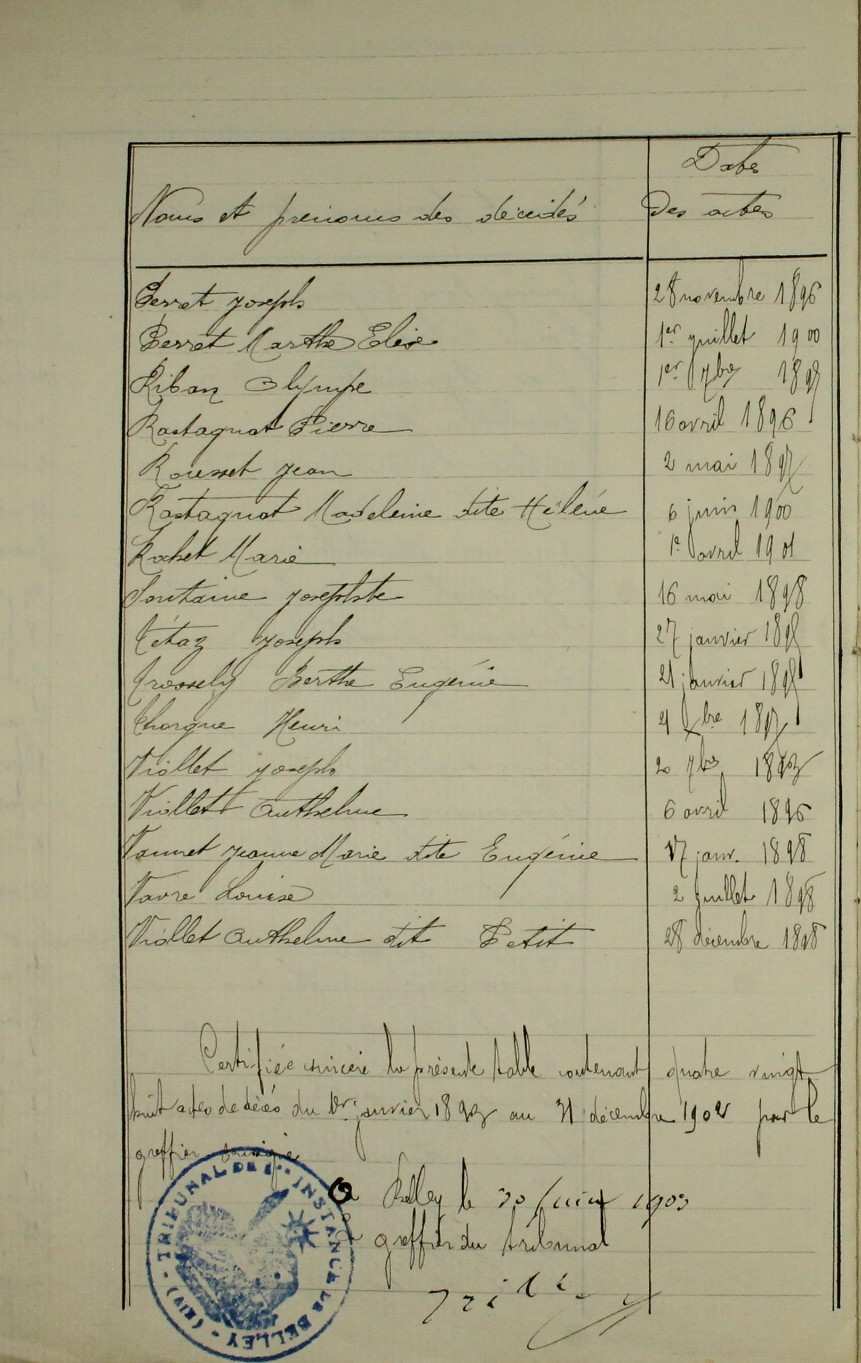 Date
Noms et prénoms des décédés des actes
Perret Joseph 28 novembre 1896
Perret Marthe Elise 1er juillet 1900
Riban Olympe 1er 7bre
Rastagnat Pierre 16 avril 1896
Rousset Jean 2 mai 1897
Rastagnat Madeleine dite Hélène 6 juin 1900
Marie 1er avril 1901
Fontaine Josephte 16 mai 1898
Tétaz Joseph 27 janvier
Berthe Eugénie 21 janvier
Henri
Viollet Joseph 20 7bre
Viollet Anthelme 6 avril 1896
Jeanne Marie dite Eugénie 17 janv. 1898
Favre Louise 2 juillet 1898
Viollet Anthelme dit Petit 28 décembre 1898
Certifiée sincère la présente table contenant quatre vingt
huit actes de décès du 1er janvier 1893 au 31 décembre 1902 par le
greffier soussigné
Belley le 30 juin 1903
greffier du tribunal
TRIBUNAL DE 1re INSTANCE DE BELLEY - (AIN) -